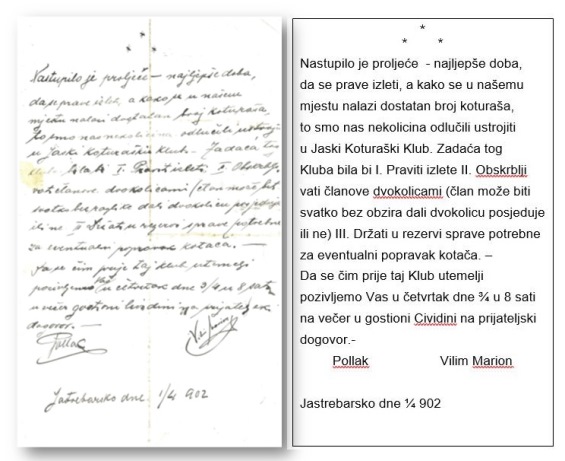 * * *
Nastupilo je proljeće – najljepše doba,
da se prave izleti, a kako se u našem
mjestu nalazi dostatan broj koturaša,
to smo nas nekolicina odlučili ustrojiti
u Jaski Koturaški klub. – Zadaća tog
kluba bila bi I. Praviti izlete II. Obskrblji
vati članove dvokolicami (član može biti
svatko bez razlike dali dvokolicu posjeduje
ili ne III Držati u rezervi sprave potrebne
za eventualni popravak kotača. —
Da se čim prije taj klub utemelji
pozivljemo Vas u četvrtak dne 3/4 u 8 sati
u veče u gostioni Cividini na prijateljski
dogovor. —
Pollak
Jastrebarsko dne 1/4 902
*
* *
Nastupilo je proljeće - najljepše doba,
da se prave izleti, a kako se u našemu
mjestu nalazi dostatan broj koturaša,
to smo nas nekolicina odlučili ustrojiti
u Jaski Koturaški Klub. Zadaća tog
Kluba bila bi I. Praviti izlete II. Obskrblji
vati članove dvokolicami (član može biti
svatko bez obzira dali dvokolicu posjeduje
ili ne) III. Držati u rezervi sprave potrebne
za eventualni popravak kotača. –
Da se čim prije taj Klub utemelji
pozivljemo Vas u četvrtak dne ¾ u 8 sati
na večer u gostioni Cividini na prijateljski
dogovor.-
Pollak Vilim Marion
Jastrebarsko dne ¼ 902